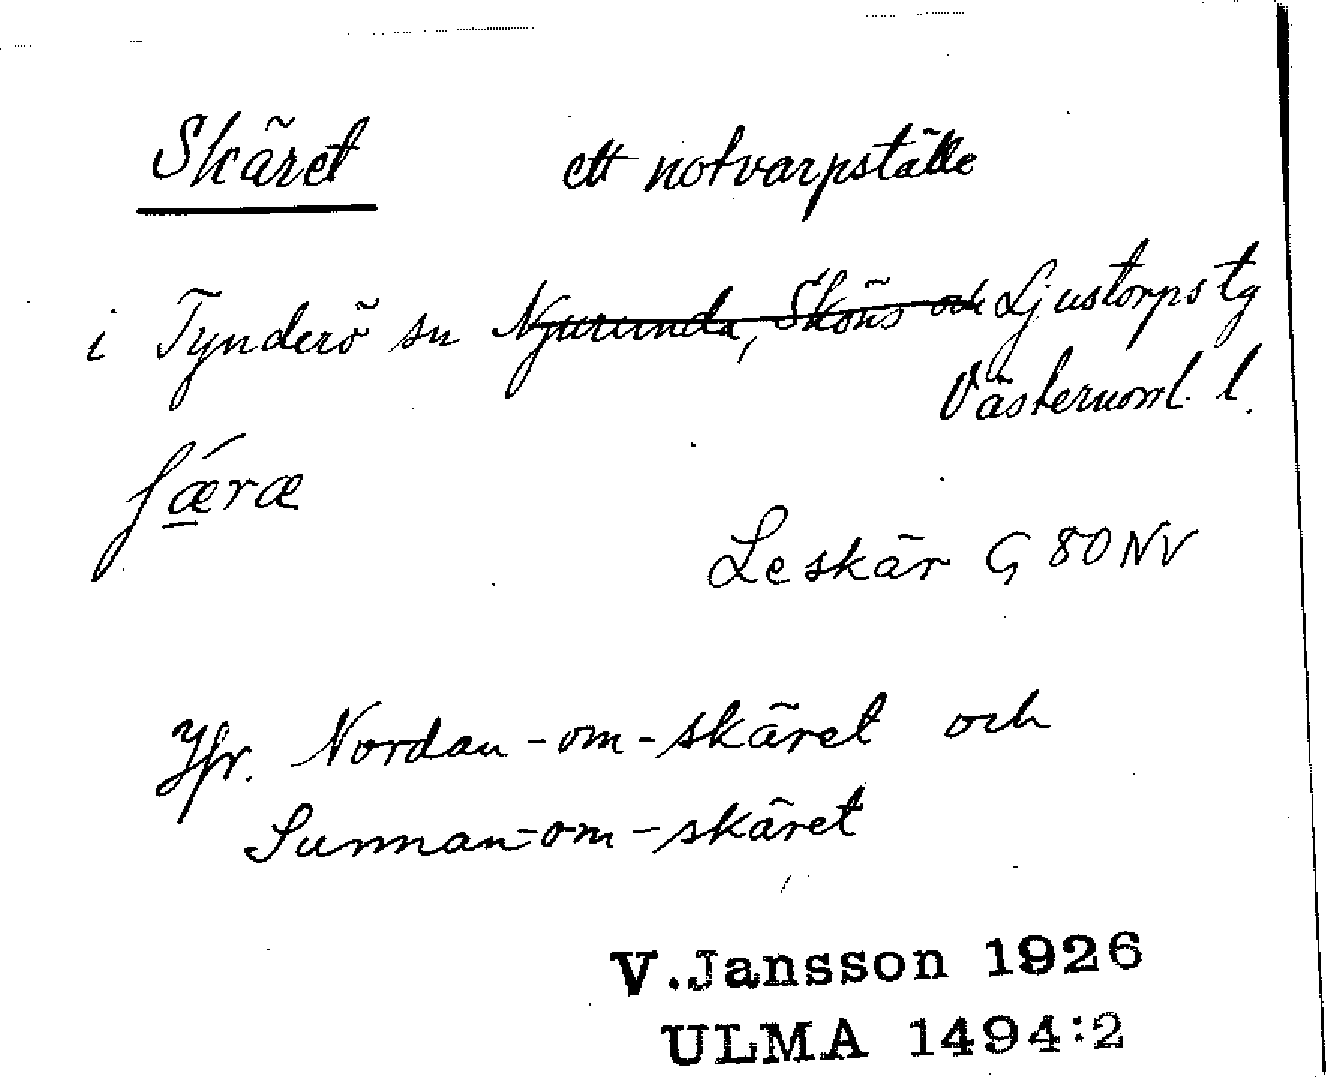 Skäret ett notvarpställe
i Tynderö sn Njurunda, Sköns och Ljustorps tg
Västernorrl. l.
ʃæ̠ræ
Leskär G 80 NV
Jfr. Nordan-om-skäret och
Sunnan-om-skäret
V.Jansson 1926
ULMA 1494:2